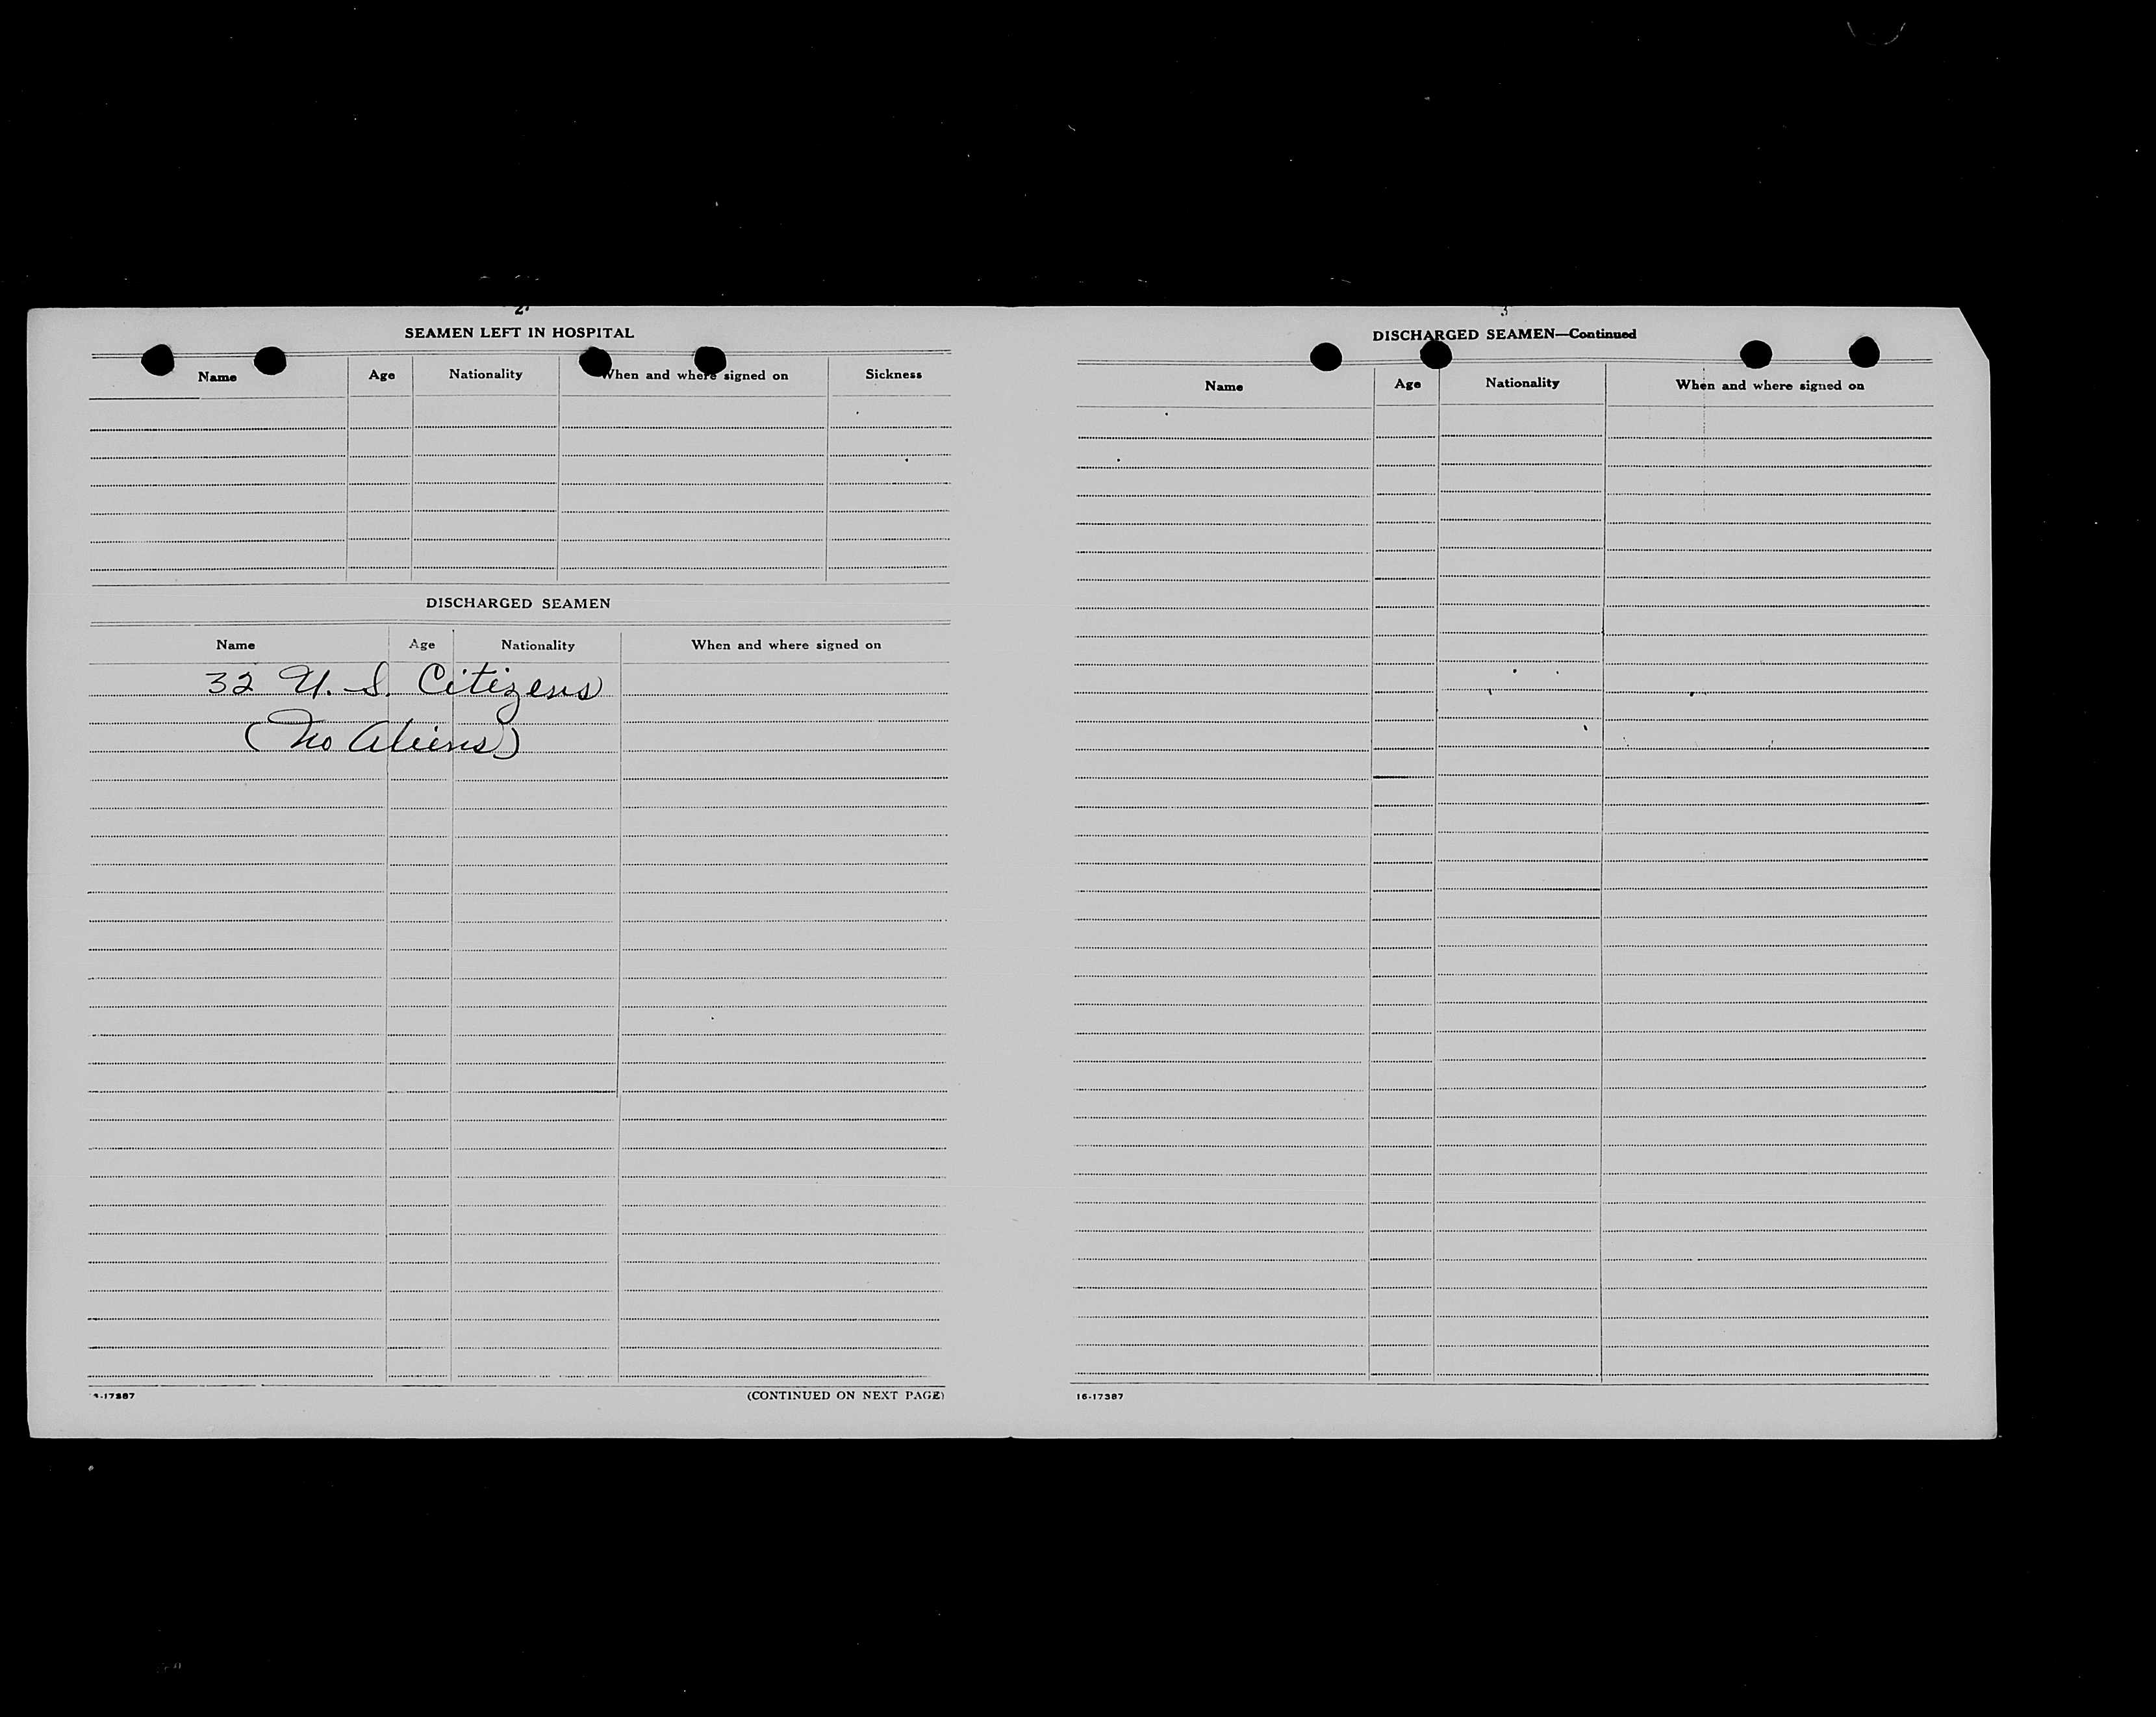 2
SEAMEN LEFT IN HOSPITAL
Name Age Nationality When and where signed on Sickness
DISCHARGED SEAMEN
Name Age Nationality When and where signed on
32 U. S. Citizens
(No Aliens)
(CONTINUED ON NEXT PAGE)
3
DISCHARGED SEAMEN—Continued
Name Age Nationality When and where signed on
16-17387